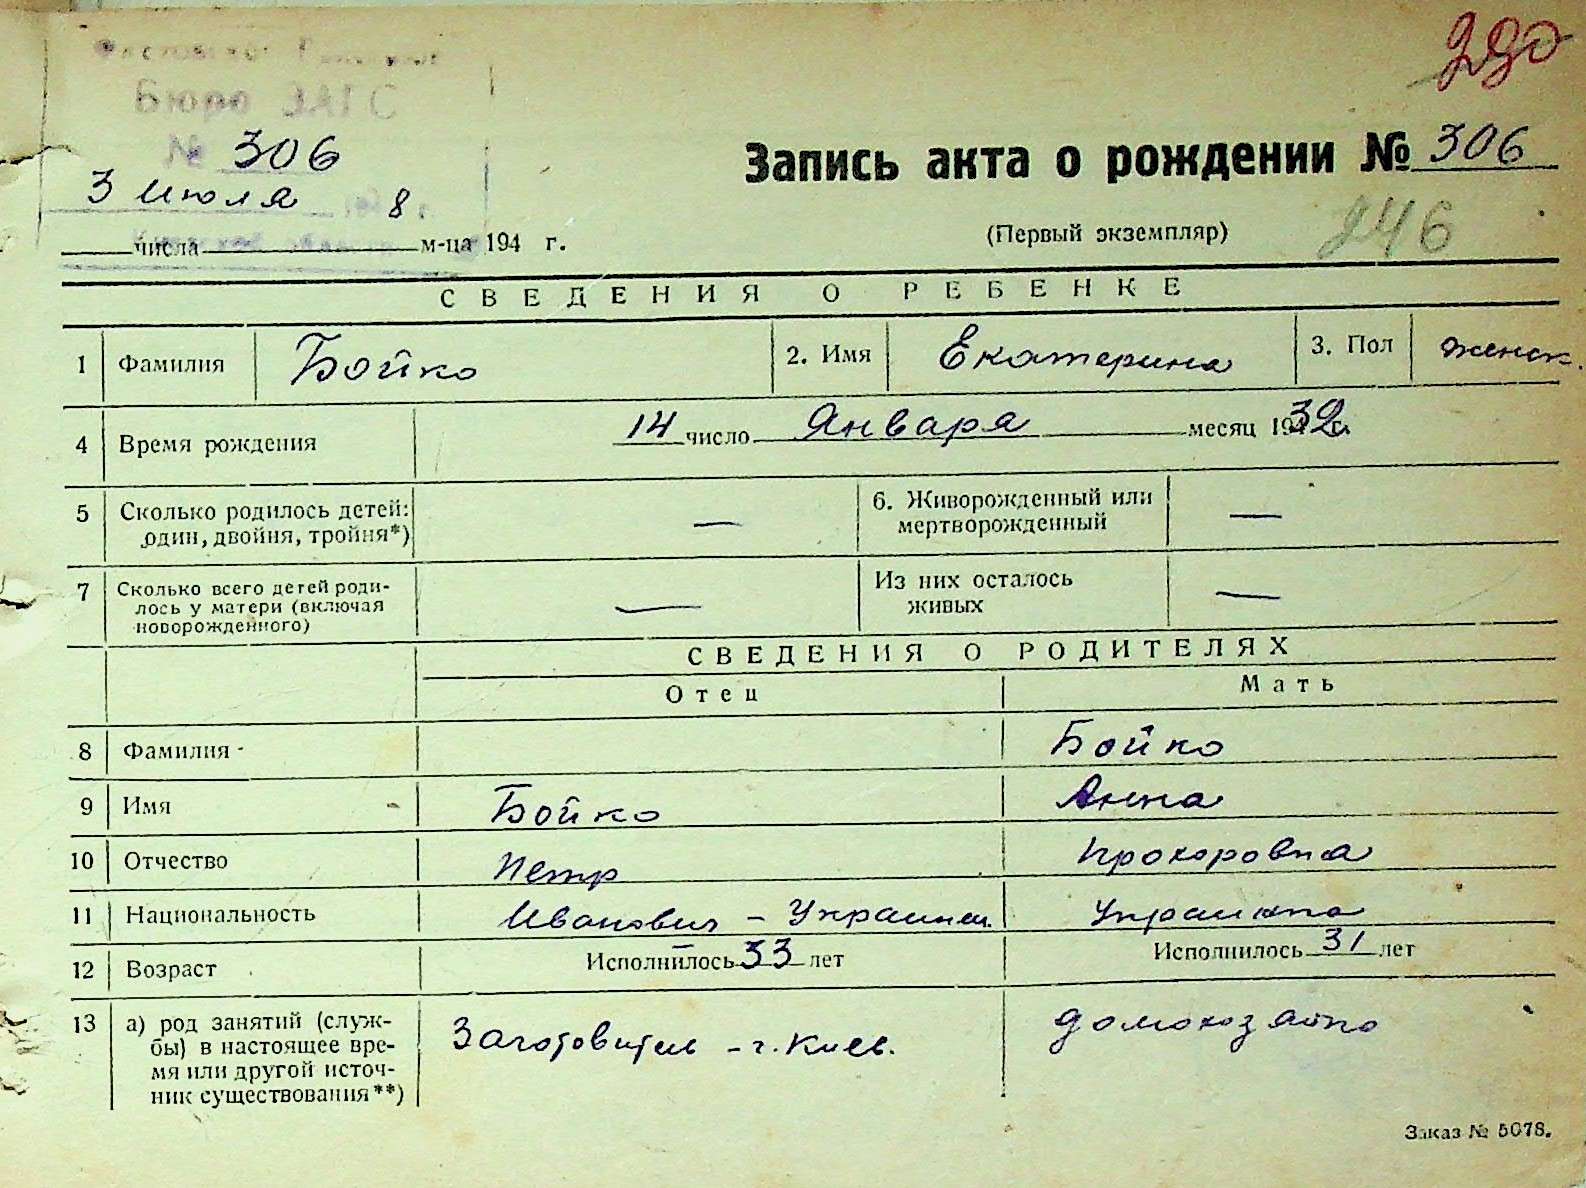 Бюро ЗАГС
№ 306
3 Июля 8
числа м-ца 194 г.
Запись акта о рождении № 306
(Первый экземпляр)
246
СВЕДЕНИЯ О РЕБЕНКЕ
1 Фамилия Бойко 2. Имя Екатерина 3. Пол женск.
4 Время рождения 14 число Января месяц 1932
5 Сколько родилось детей: один, двойня, тройня*) — 6. Живорожденный или мертворожденный —
7 Сколько всего детей роди-
лось у матери (включая
новорожденного) — Из них осталось живых —
СВЕДЕНИЯ О РОДИТЕЛЯХ
Отец Мать
8 Фамилия Бойко
9 Имя Бойко Анна
10 Отчество Петр Прохоровна
11 Национальность Иванович - Украинец Украинка
12 Возраст Исполнилось 33 лет Исполнилось 31 лет
13 а) род занятий (служ-
бы) в настоящее вре-
мя или другой источ-
ник существования**) Заготовитель - г. Киев. домохозяйка
Заказ № 5078.